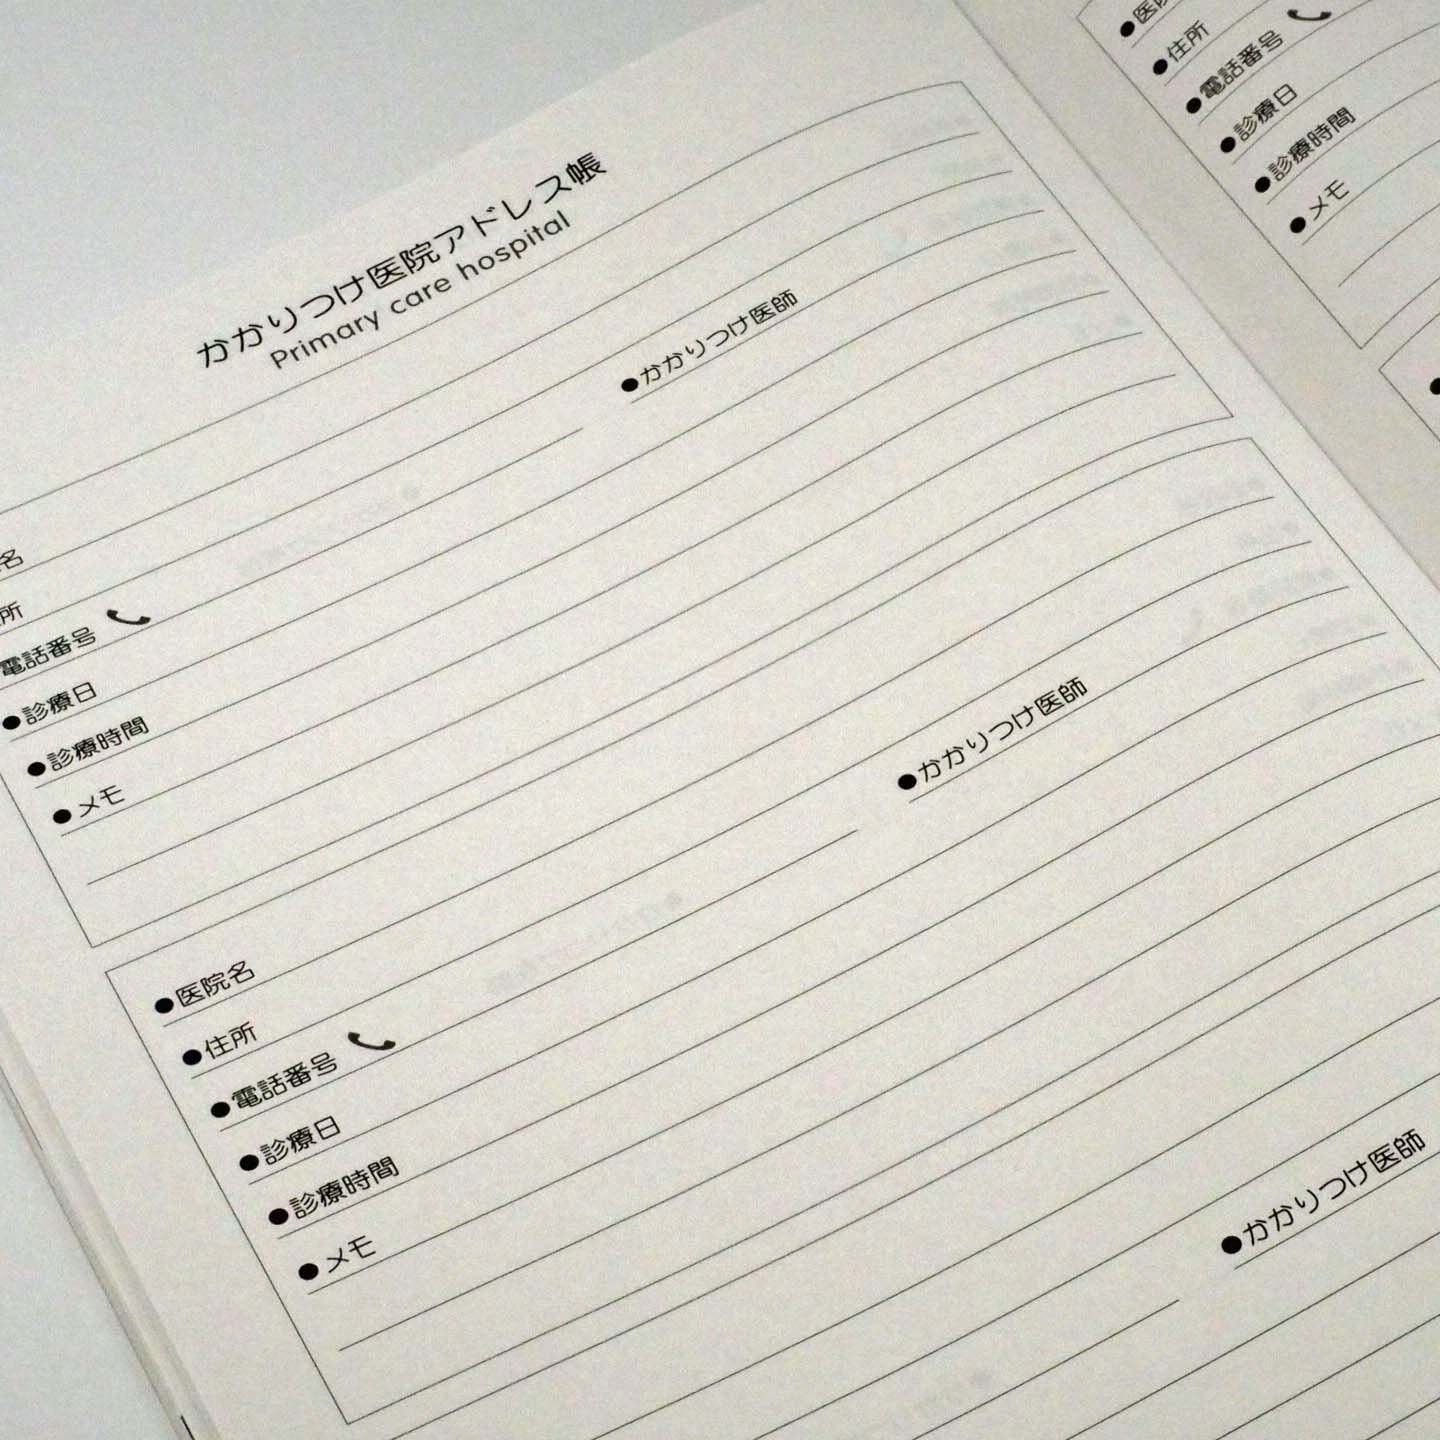 かかりつけ医院アドレス帳
Primary care hospital
名
所
電話番号
●かかりつけ医師
●診療日
●診療時間
●メモ
●医院名
●住所
●電話番号
●かかりつけ医師
●診療日
●診療時間
●メモ
●かかりつけ医師
●医院
●住所
●電話番号
●診療日
●診療時間
●メモ